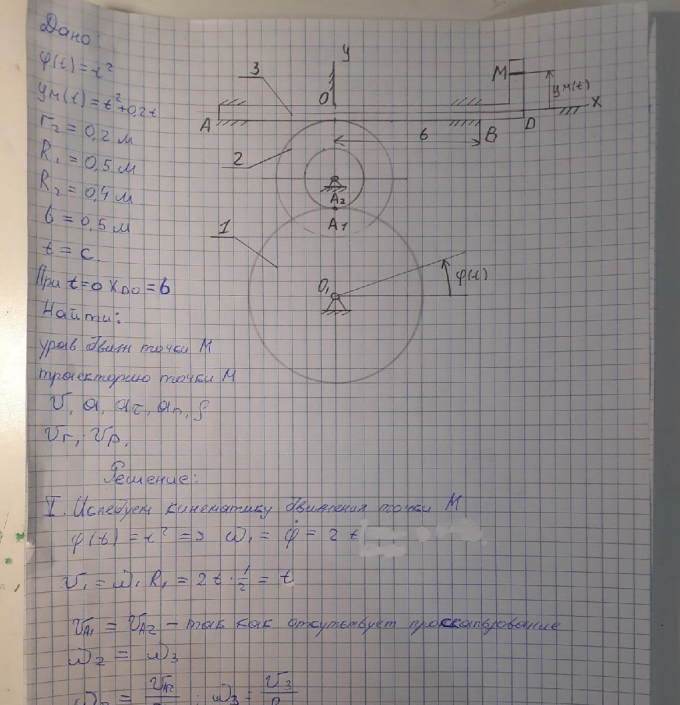 Дано:
φ(t) = t²
yм(t) = t² + 0,2t
r₂ = 0,2 м
R₁ = 0,5 м
R₂ = 0,4 м
b = 0,5 м
t = c
При t=0 X_D0 = b
Найти:
траекторию точки М
V, a, aτ, an, ρ
Vr, Vp,
y
3
O
M
yм(t)
X
A
b
B
D
2
A₂
A₁
1
O₁
φ(t)
Решение:
I. Кинематику движения точки М
φ(t) = t² => ω₁ = φ̇ = 2t
V₁ = ω₁R₁ = 2t · 1/2 = t
V_A1 = V_A2 – так как отсутствует проскальзование
ω₂ = ω₃
V_A2 ; ω₃ = V₃